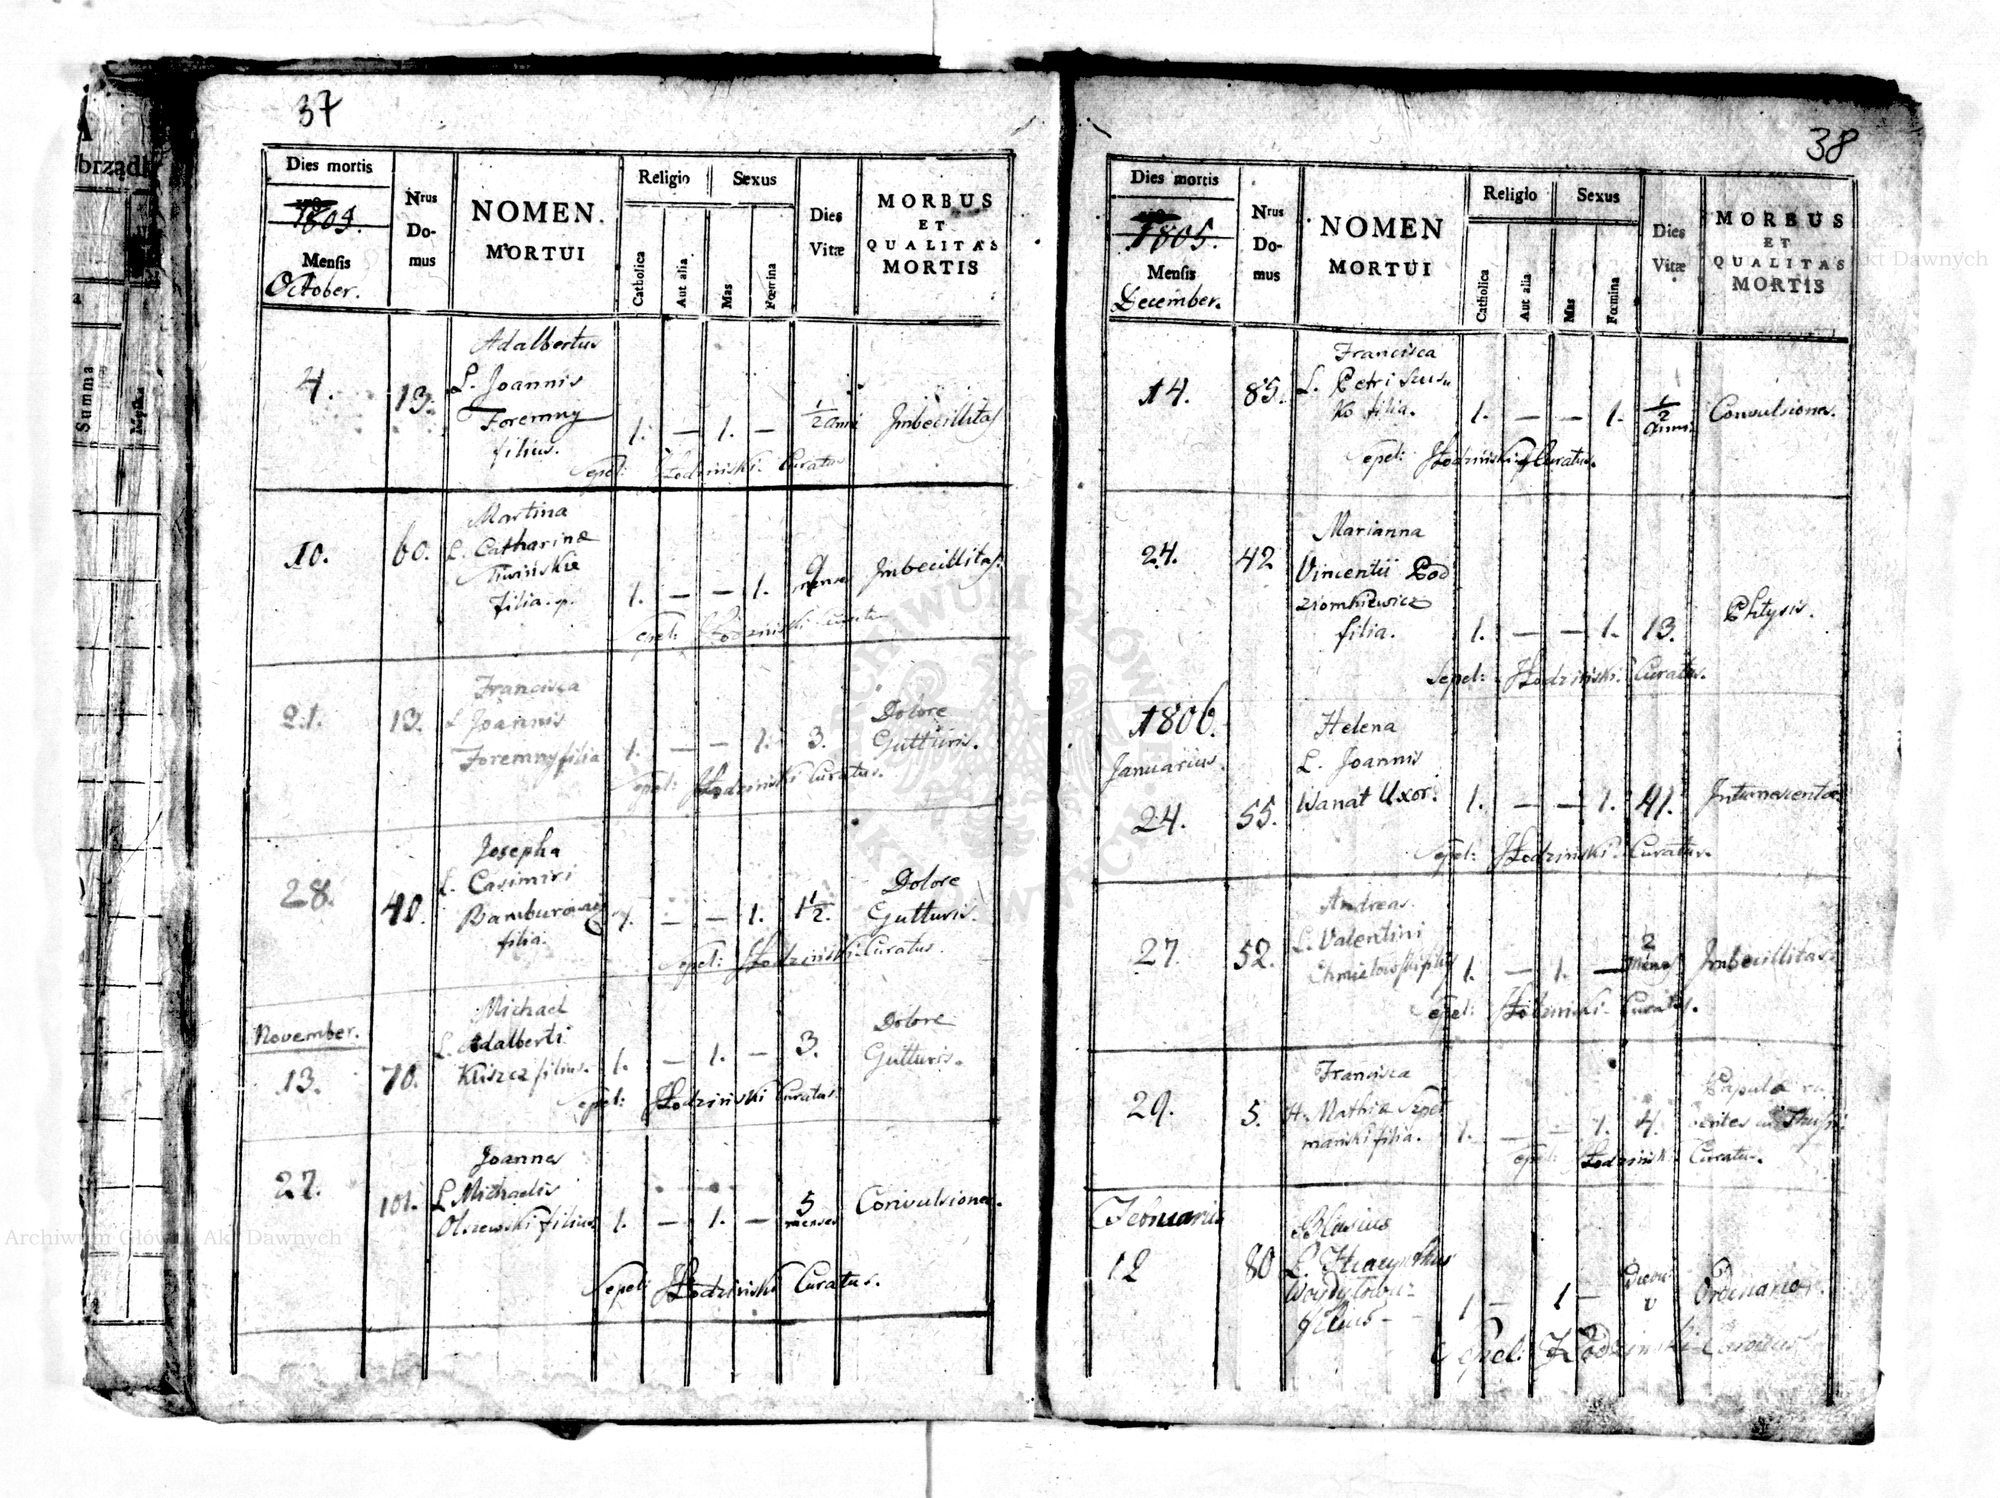 37
Dies mortis
1805.
Mensis
October.
Nrus Do-mus
NOMEN
MORTUI
Religio
Sexus
Catholica
Aut alia
Mas
Fœmina
Dies
Vitæ
MORBUS
ET
QUALITAS
MORTIS
Adalbertus
4. 13. L. Joannis
Foremny 1. — 1. — 1/2 anni Imbecillitas
filius.
Sepel: Łodziński Curatus
Martina
10. 60. L. Catharinæ
filia. 1. — — 1. 9 mense Imbecillitas.
Sepel: Łodziński Curatus
Francisca
21. 13. L. Joannis
Foremny filia 1. — — 1. 3. Dolore Gutturis.
Sepel: Łodziński Curatus.
Josepha
28. 40. L. Casimiri
filia. — — 1. 1 1/2. Dolore Gutturis.
Sepel: Łodziński Curatus.
November.
Michael
13. 70. L. Adalberti
Kliszcz filius. 1. — 1. — 3. Dolore Gutturis.
Sepel: Łodziński Curatus.
Joannes
27. 101. L. Michaelis
Olszewski filius 1. — 1. — 5 menses Convulsiones.
Sepel: Łodziński Curatus.
38
Dies mortis
1805.
Mensis
December.
Nrus Do-mus
NOMEN
MORTUI
Religio
Sexus
Catholica
Aut alia
Mas
Fœmina
Dies
Vitæ
MORBUS
ET
QUALITAS
MORTIS
Francisca
14. 85. L. Petri
filia. 1. — — 1. 1/2 anni Convulsiones.
Sepel: Łodziński Curatus.
Marianna
24. 42 Vincentii Pod
ziomkiewicz
filia. 1. — — 1. 13. Phtysis.
Sepel: Łodziński Curatus.
1806.
Januarius.
Helena
L. Joannis
24. 55. Wanat Uxor. 1. — — 1. 41.
Sepel: Łodziński Curatus.
Andreas
27. 52. L. Valentini
Chmielowski filius 1. — 1. — 2 menses Imbecillitas.
Sepel: Łodziński Curatus.
Francisca
29. 5. Mathiæ
filia. 1. — — 1. 4.
Sepel: Łodziński Curatus.
Februarius
Blasius
12 80 L. Hyacynthus
filius 1 — 1 — Ordinario.
Sepel: Łodziński
Summa
Archiwum Główne Akt Dawnych
ARCHIWUM GŁÓWNE AKT DAWNYCH
Akt Dawnych